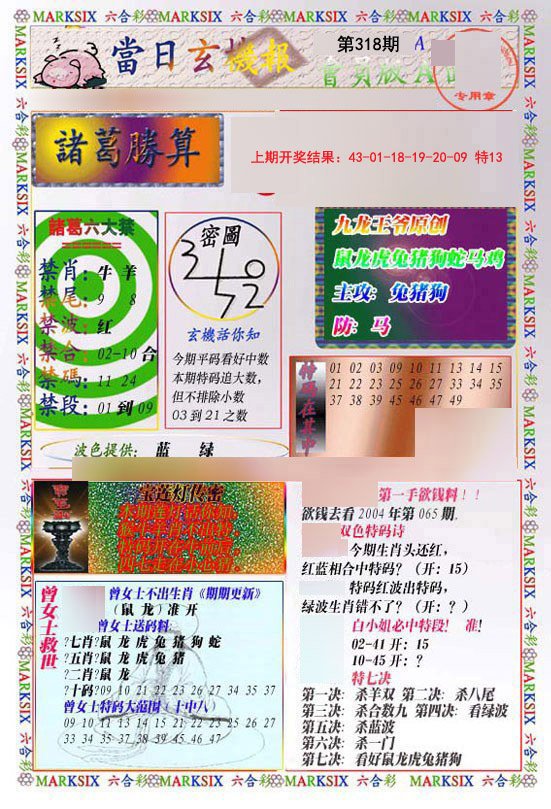 MARKSIX 六合彩 MARKSIX 六合彩 MARKSIX 六合彩 MARKSIX 六合彩 MARKSIX
當日玄機報
第318期
A
會員版A面
专用章
諸葛勝算
上期开奖结果：43-01-18-19-20-09 特13
諸葛六大禁
禁肖：牛 羊
禁尾：9 8
禁波：红
禁合：02-10 合
禁碼：11 24
禁段：01 到 09
密圖
玄機話你知
今期平码看好中数
本期特码追大数，
但不排除小数
03 到 21 之数
波色提供： 蓝 绿
九龙王爷原创
鼠龙虎兔猪狗蛇马鸡
主攻：兔猪狗
防：马
特码在其中
01 02 03 09 10 11 13 14 15
21 22 23 25 26 27 33 34 35
37 38 39 45 46 47 49
宝莲灯传密
曾女士救世
曾女士不出生肖《期期更新》
（鼠 龙）准 开
曾女士送码料
?七肖?鼠 龙 虎 兔 猪 狗 蛇
?五肖?鼠 龙 虎 兔 猪
?二肖?鼠 龙
?十码?09 10 21 22 23 26 27 34 35 37
曾女士特码大范围（十中八）
09 10 11 13 14 15 21 22 23 25 26 27
33 34 35 37 38 39 45 46 47
第一手欲钱料！！
欲钱去看 2004 年第 065 期.
双色特码诗
今期生肖头还红，
红蓝相合中特码？（开：15）
特码红波出特码，
绿波生肖错不了？（开：？）
白小姐必中特段！ 准！
02-41 开：15
10-45 开：？
特七决
第一决：杀羊双 第二决：杀八尾
第三决：杀合数九 第四决：看绿波
第五决：杀蓝波
第六决：杀一门
第七决：看好鼠龙虎兔猪狗
MARKSIX 六合彩 MARKSIX 六合彩 MARKSIX 六合彩 MARKSIX 六合彩 MARKSIX